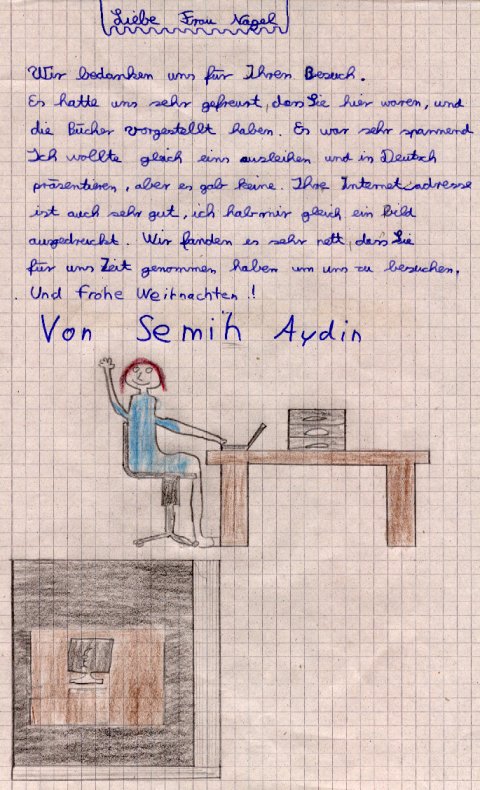 Liebe Frau Nagel
Wir bedanken uns für Ihren Besuch.
Es hatte uns sehr gefreut, dass Sie hier waren, und
die Bücher vorgestellt haben. Es war sehr spannend
Ich wollte gleich eins ausleihen und in Deutsch
präsentieren, aber es gab keine. Ihre Internetadresse
ist auch sehr gut, ich hab mir gleich ein bild
ausgedruckt. Wir fanden es sehr nett, dass Sie
für uns Zeit genommen haben um uns zu besuchen.
Und frohe Weihnachten!
Von Semih Aydin